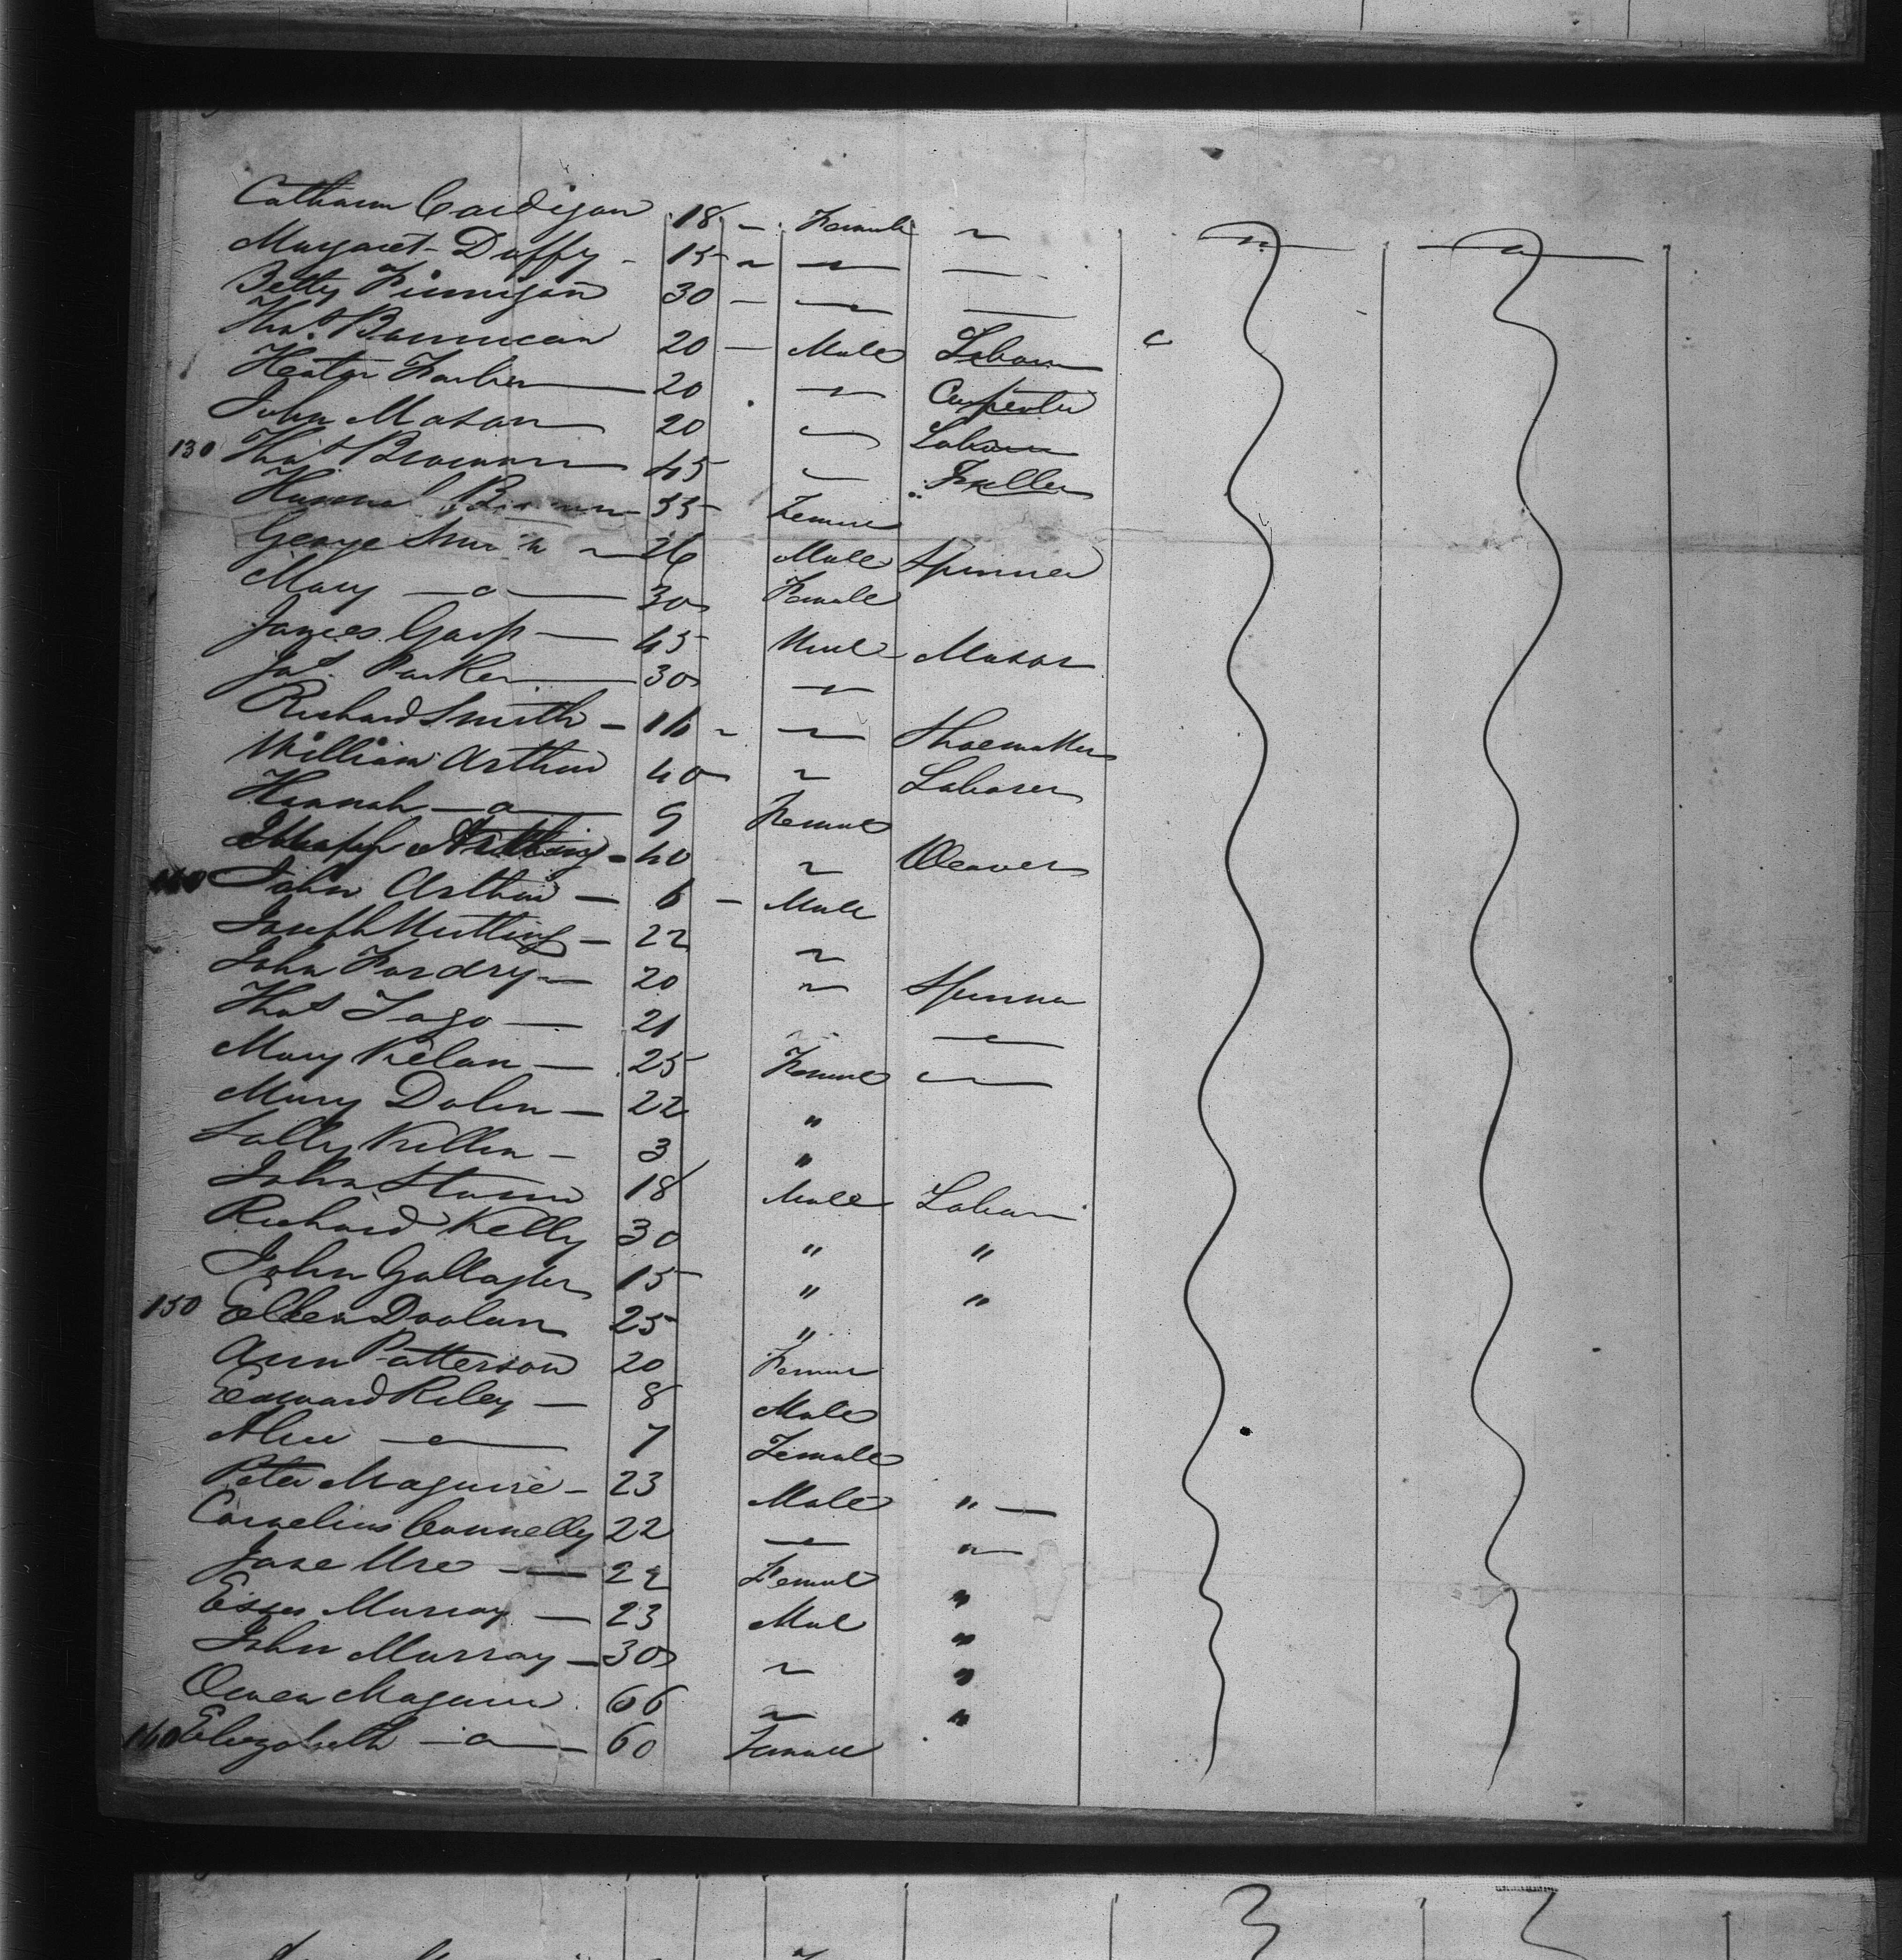 Catharin Cardigan 18 — Female ~
Margaret Duffy - 15 ~ — —
Betty Finnigan 30 — — —
Thos. Brannican 20 — Male Labourer
Heator Forber — 20 — Carpenter
John Mason — 20 — Labourer
130 Thos Brown — 45 — Fuller
Hannah 33 Female
George Smith ~ 26 Male Spinner
Mary —a— 30 Female
James — 45 Male Mason
Jas. Parker — 30 —
Richard Smith — 16 ~ — Shoemaker
William Arthur 40 ~ Labourer
Hannah —a— 9 Female
Joseph - 40 ~ Weaver
140 John Arthur — 6 — Male
Joseph Nutting — 22 ~
John Fordry — 20 ~ Spinner
Thos Jago — 21 —
Mary Kelan — 25 Female —
Mary Dolen — 22 "
Sally Killen - 3 "
John 18 Male Labour
Richard Kelly 30 " "
John Gallagher 15 " "
150 Ellen Doolan 25 "
Ann Patterson 20 Female
Edward Riley — 8 Male
Alice —a— 7 Female
Peter Maguire - 23 Male " —
Cornelius Connelly 22 — "
Jane Ure — 22 Female "
Murray — 23 Male "
John Murray — 30 ~ "
Owen Maguire 66 ~ "
160 Elizabeth —a— 60 Female